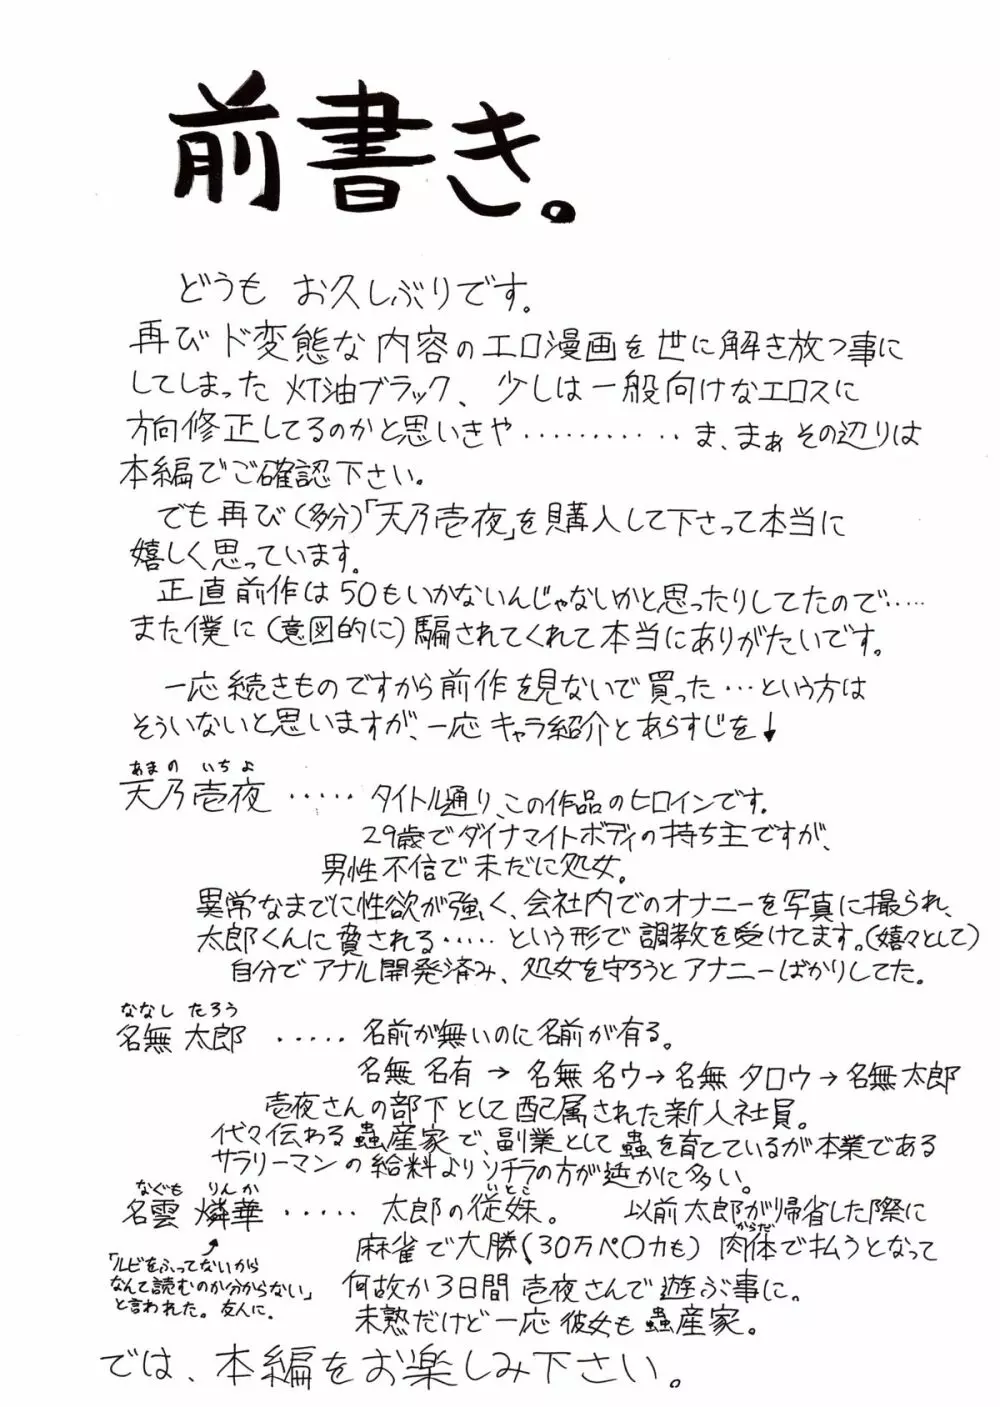 前書き。
どうも お久しぶりです。
再びド変態な内容のエロ漫画を世に解き放つ事に
してしまった灯油ブラック、少しは一般向けなエロスに
方向修正してるのかと思いきや…………ま、まぁその辺りは
本編でご確認下さい。
でも再び(多分)「天乃壱夜」を購入して下さって本当に
嬉しく思っています。
正直前作は50もいかないんじゃないかと思ったりしてたので……
また僕に(意図的に)騙されてくれて本当にありがたいです。
一応続きものですから前作を見ないで買った…という方は
そういないと思いますが、一応キャラ紹介とあらすじを↓
あまの いちよ
天乃壱夜 ‥‥‥ タイトル通り、この作品のヒロインです。
29歳でダイナマイトボディの持ち主ですが、
男性不信で未だに処女。
異常なまでに性欲が強く、会社内でのオナニーを写真に撮られ、
太郎くんに脅される‥‥‥という形で調教を受けてます。(嬉々として)
自分でアナル開発済み、処女を守ろうとアナニーばかりしてた。
ななし たろう
名無 太郎 ‥‥‥ 名前が無いのに名前が有る。
名無 名有→名無 名ウ→名無 タロウ→名無太郎
壱夜さんの部下として配属された新入社員。
代々伝わる蟲産家で、副業として蟲を育てているが本業である
サラリーマンの給料よりソチラの方が遥かに多い。
なぐも りんか いとこ
名雲 燐華 ‥‥‥ 太郎の従妹。 以前太郎が帰省した際に
からだ
麻雀で大勝(30万ペ〇カも)肉体で払うとなって
「ルビをふってないから
なんて読むのか分からない」
と言われた。友人に。
何故か3日間壱夜さんで遊ぶ事に。
未熟だけど一応彼女も蟲産家。
では、本編をお楽しみ下さい。